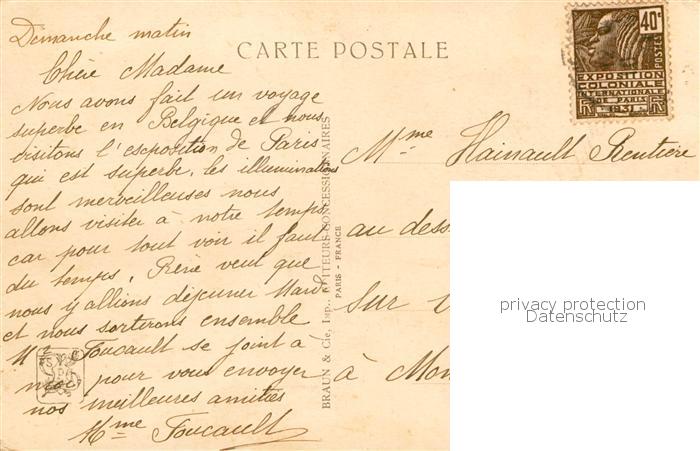 Dimanche matin
CARTE POSTALE
Chère Madame
Nous avons fait un voyage
superbe en Belgique et nous
visitons l'exposition de Paris
qui est superbe, les illuminations
sont merveilleuses nous
allons visiter à notre temps,
car pour tout voir il faut
du temps. René veut que
nous y allions déjeuner Mardi
et nous sortirons ensemble
Foucault se joint à
pour vous envoyer
nos meilleures amitiés
Mme Foucault
BRAUN & Cie, Imp., ÉDITEURS-CONCESSIONNAIRES
PARIS - FRANCE
40c
POSTES
EXPOSITION
COLONIALE
INTERNATIONALE
DE PARIS
1931
Mme Hainault Rentière
au dess
sur
à Mon
privacy protection
Datenschutz